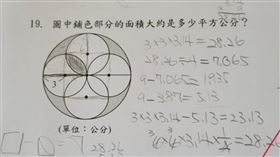 19. 圖中鋪色部分的面積大約是多少平方公分？
3×3×3.14=28.26
28.26÷4=7.065
9-7.065=1935
9-387=5.13
3×6×3.14-5.13=23.13
6×6×3.14×1/4=28.26
3
(單位：公分)
28.26